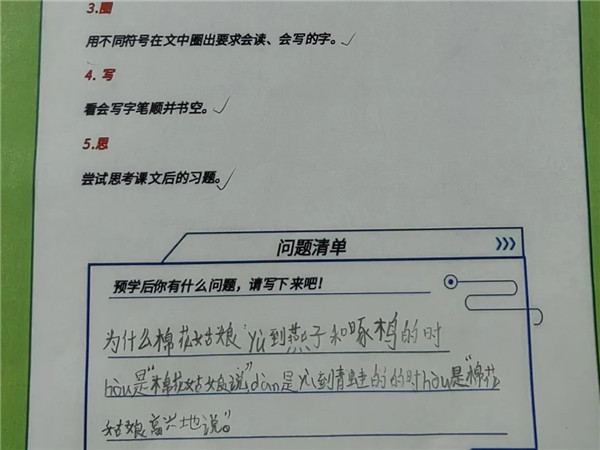 3.圈
用不同符号在文中圈出要求会读、会写的字。
4. 写
看会写字笔顺并书空。
5.思
尝试思考课文后的习题。
问题清单
预学后你有什么问题，请写下来吧！
为什么棉花姑娘yù到燕子和啄木鸟的时
hòu是“棉花姑娘说”，dàn是yù到青蛙的的时hòu是“棉花
姑娘高兴地说”。